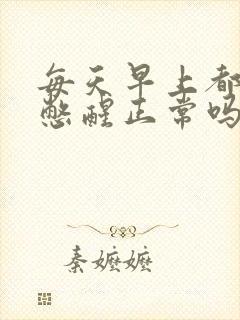 每天早上都
憋醒正常吗
秦嬷嬷